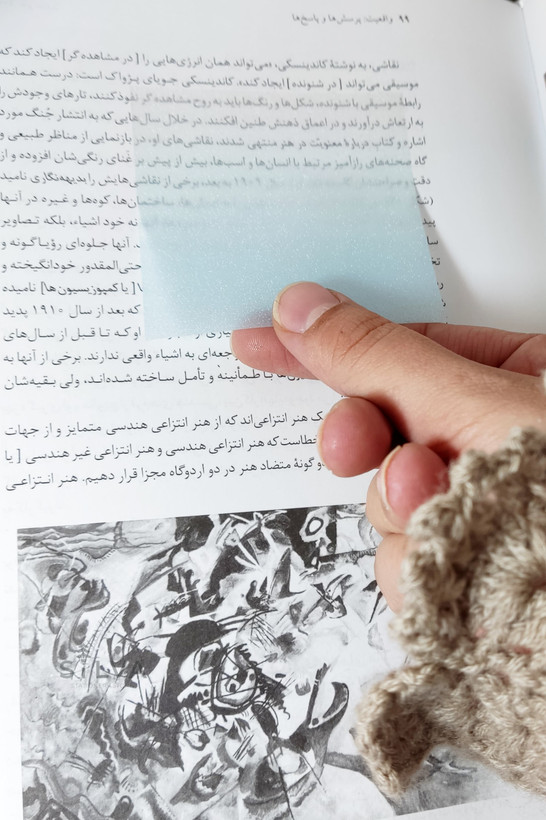 ۹۹ واقعیت: پرسش‌ها و پاسخ‌ها
نقاشی، به نوشتهٔ کاندینسکی، «می‌تواند همان انرژی‌هایی را [در مشاهده گر] ایجاد کند که
موسیقی می‌تواند [در شنونده] ایجاد کند». کاندینسکی جویای پژواک است: درست همانند
رابطهٔ موسیقی با شنونده، شکل‌ها و رنگ‌ها باید به روح مشاهده گر نفوذ کنند، تارهای وجودش را
به ارتعاش درآورند و در اعماق ذهنش طنین افکنند. در خلال سال‌هایی که به انتشار جُنگ مورد
اشاره و کتاب دربارهٔ معنویت در هنر منتهی شدند، نقاشی‌های او، در بازنمایی از مناظر طبیعی و
گاه صحنه‌های رازآمیز مرتبط با انسان‌ها و اسب‌ها، بیش از پیش بر غنای رنگی‌شان افزوده و از
دقت ۱۹۰۹ به بعد، برخی از نقاشی‌هایش را بدیهه‌نگاری نامید
ساختمان‌ها، کوه‌ها و غیره در آنها
نه خود اشیاء، بلکه تصاویر
آنها جلوه‌ای رؤیاگونه و
حتی‌المقدور خودانگیخته و
[یا کمپوزیسیون‌ها] نامیده
که بعد از سال ۱۹۱۰ پدید
او که تا قبل از سال‌های
به اشیاء واقعی ندارند. برخی از آنها به
با طمأنینه و تأمل ساخته شده‌اند، ولی بقیه‌شان
یک هنر انتزاعی‌اند که از هنر انتزاعی هندسی متمایز و از جهات
خطاست که هنر انتزاعی هندسی و هنر انتزاعی غیر هندسی [یا
گونهٔ متضاد هنر در دو اردوگاه مجزا قرار دهیم. هنر انتزاعی